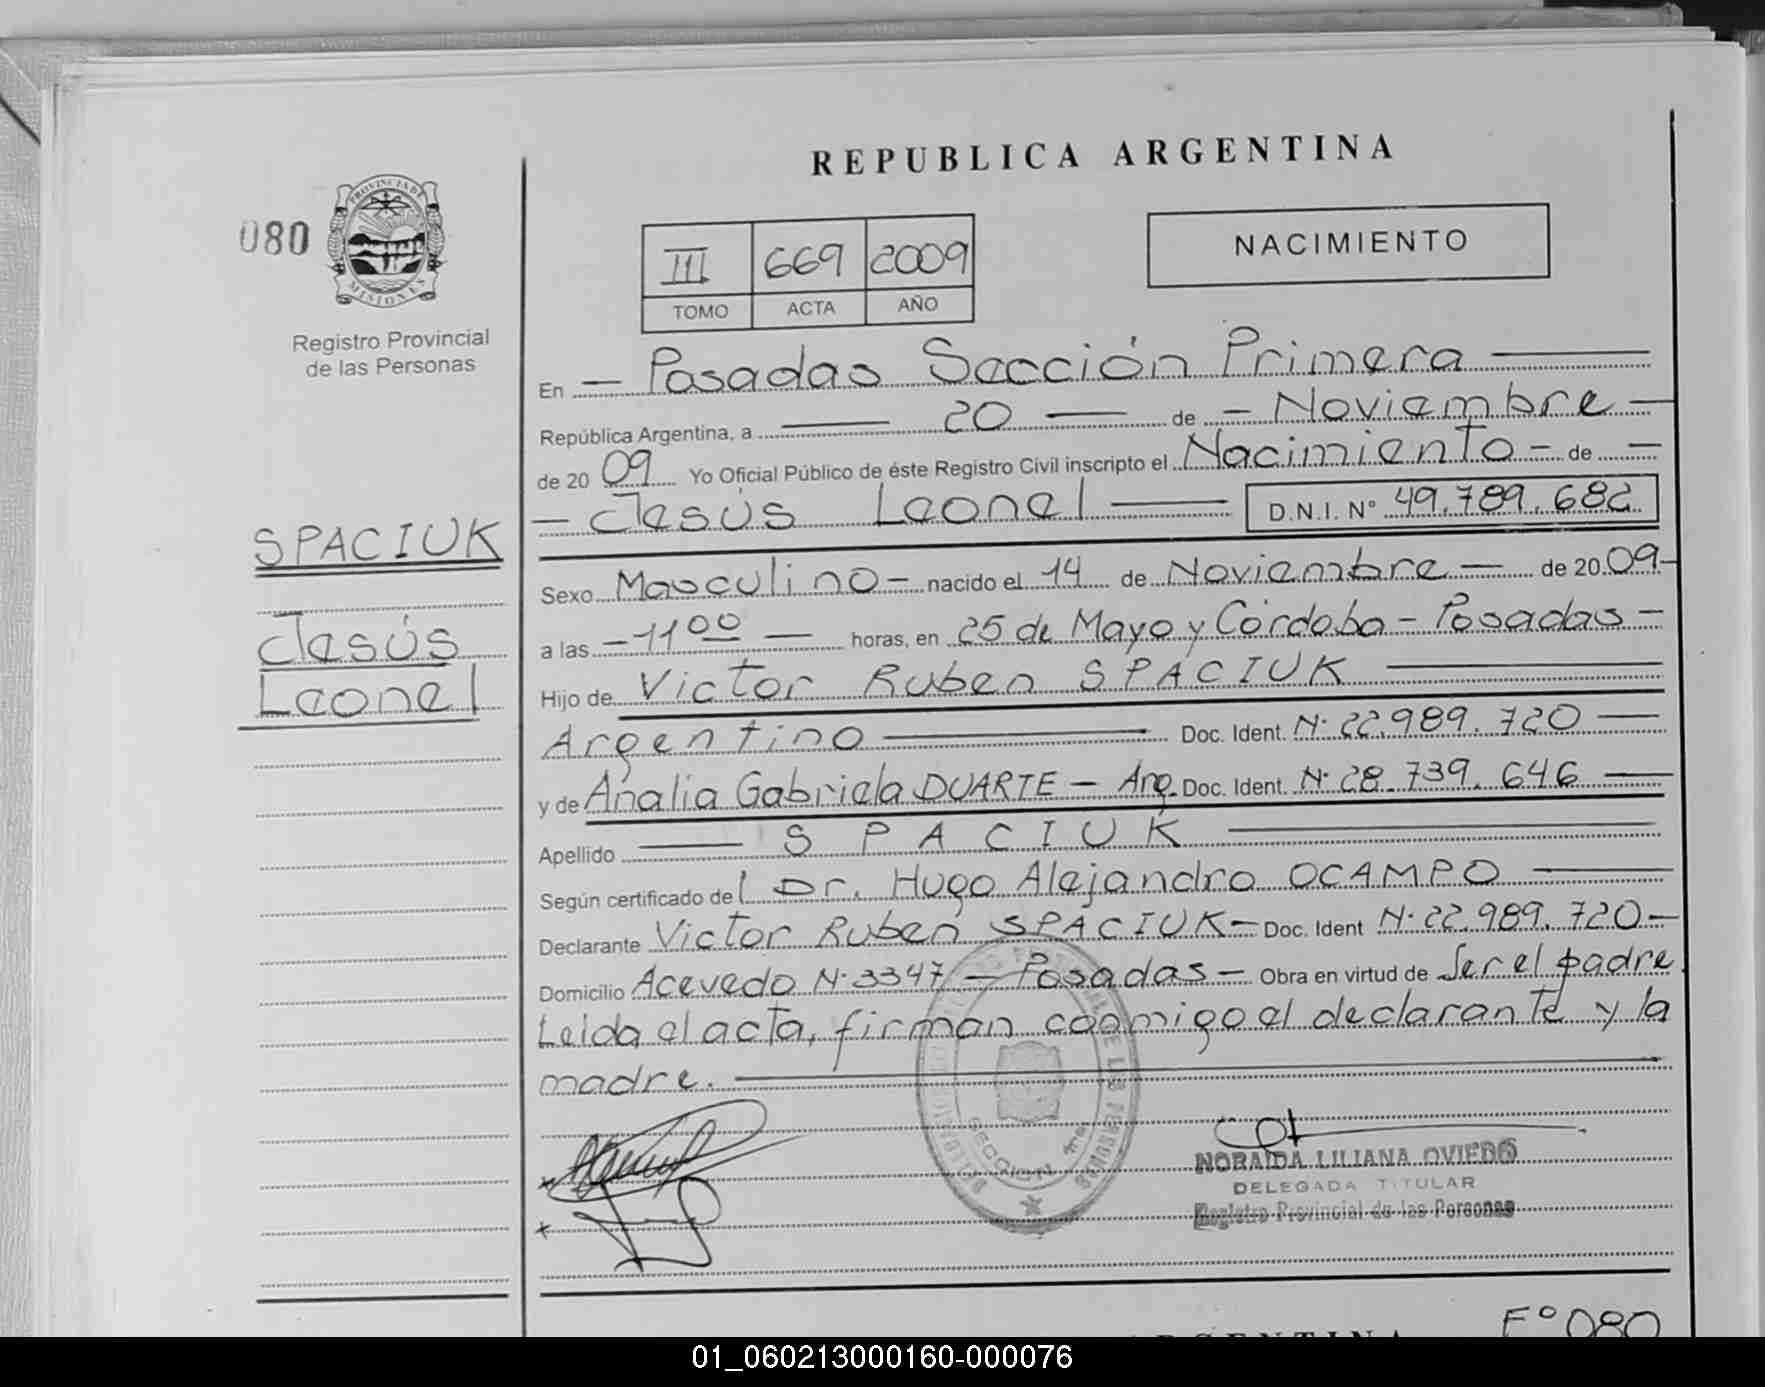 REPUBLICA ARGENTINA
080
PROVINCIA DE
MISIONES
Registro Provincial
de las Personas
III 669 2009
TOMO ACTA AÑO
NACIMIENTO
En — Posadas Sección Primera —
República Argentina, a — 20 — de — Noviembre —
de 20 09 Yo Oficial Público de éste Registro Civil inscripto el Nacimiento — de —
— Jesús Leonel — D.N.I. Nº 49.789.682
SPACIUK
Jesús
Leonel
Sexo Masculino — nacido el 14 de Noviembre — de 20 09 —
a las — 11 00 — horas, en 25 de Mayo y Córdoba — Posadas —
Hijo de Victor Ruben SPACIUK —
Argentino — Doc. Ident. Nº 22.989.720 —
y de Analia Gabriela DUARTE — Arg. Doc. Ident. Nº 28.739.646 —
Apellido — S P A C I U K —
Según certificado del Dr. Hugo Alejandro OCAMPO —
Declarante Victor Ruben SPACIUK — Doc. Ident Nº 22.989.720 —
Domicilio Acevedo Nº 3347 — Posadas — Obra en virtud de Ser el padre.
Leida el acta, firman conmigo el declarante y la
madre. —
SECCION 1ra
NORAIDA LILIANA OVIEDO
DELEGADA TITULAR
Registro Provincial de las Personas
Fº 080
ARGENTINA
01_060213000160-000076